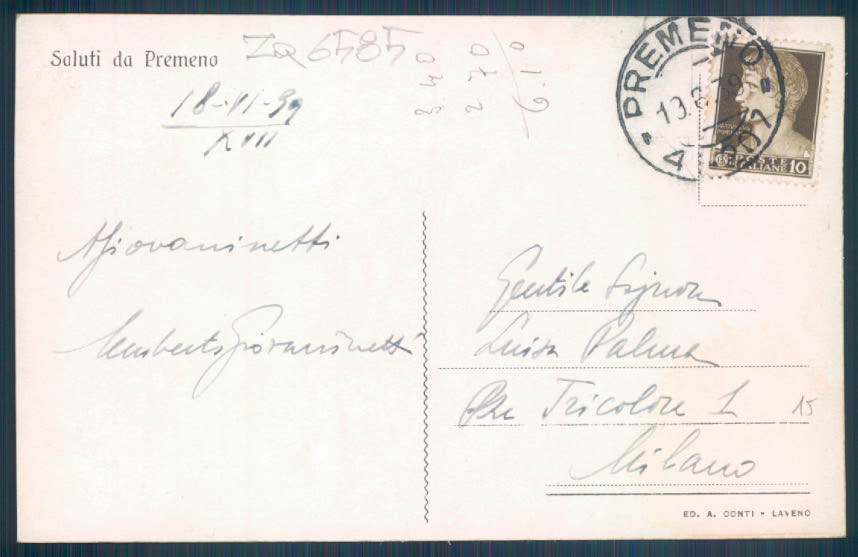 Saluti da Premeno
ZQ6585
340
270
0.19
18-VI-39
XVII
PREMENO
POSTE
ITALIANE
CENT. 10
AGiovaninetti
Umberto Giovaninetti
Gentile Signora
Luisa Palma
Pze Tricolore 1
15
Milano
ED. A. CONTI - LAVENO